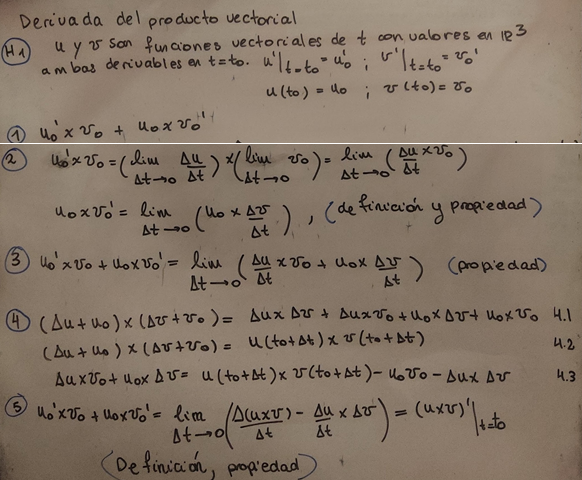 Derivada del producto vectorial
H1 u y v son funciones vectoriales de t con valores en IR³
ambas derivables en t=t₀. u'|t=t₀ = u₀' ; v'|t=t₀ = v₀'
u(t₀) = u₀ ; v(t₀) = v₀
1 u₀' × v₀ + u₀ × v₀'
2 u₀' × v₀ = (lim Δt→0 Δu/Δt) × (lim Δt→0 v₀) = lim Δt→0 (Δu/Δt × v₀)
u₀ × v₀' = lim Δt→0 (u₀ × Δv/Δt), (definición y propiedad)
3 u₀' × v₀ + u₀ × v₀' = lim Δt→0 (Δu/Δt × v₀ + u₀ × Δv/Δt) (propiedad)
4 (Δu + u₀) × (Δv + v₀) = Δu × Δv + Δu × v₀ + u₀ × Δv + u₀ × v₀ 4.1
(Δu + u₀) × (Δv + v₀) = u(t₀+Δt) × v(t₀+Δt) 4.2
Δu × v₀ + u₀ × Δv = u(t₀+Δt) × v(t₀+Δt) - u₀v₀ - Δu × Δv 4.3
5 u₀' × v₀ + u₀ × v₀' = lim Δt→0 (Δ(u×v)/Δt - Δu/Δt × Δv) = (u×v)'|t=t₀
(Definición, propiedad)